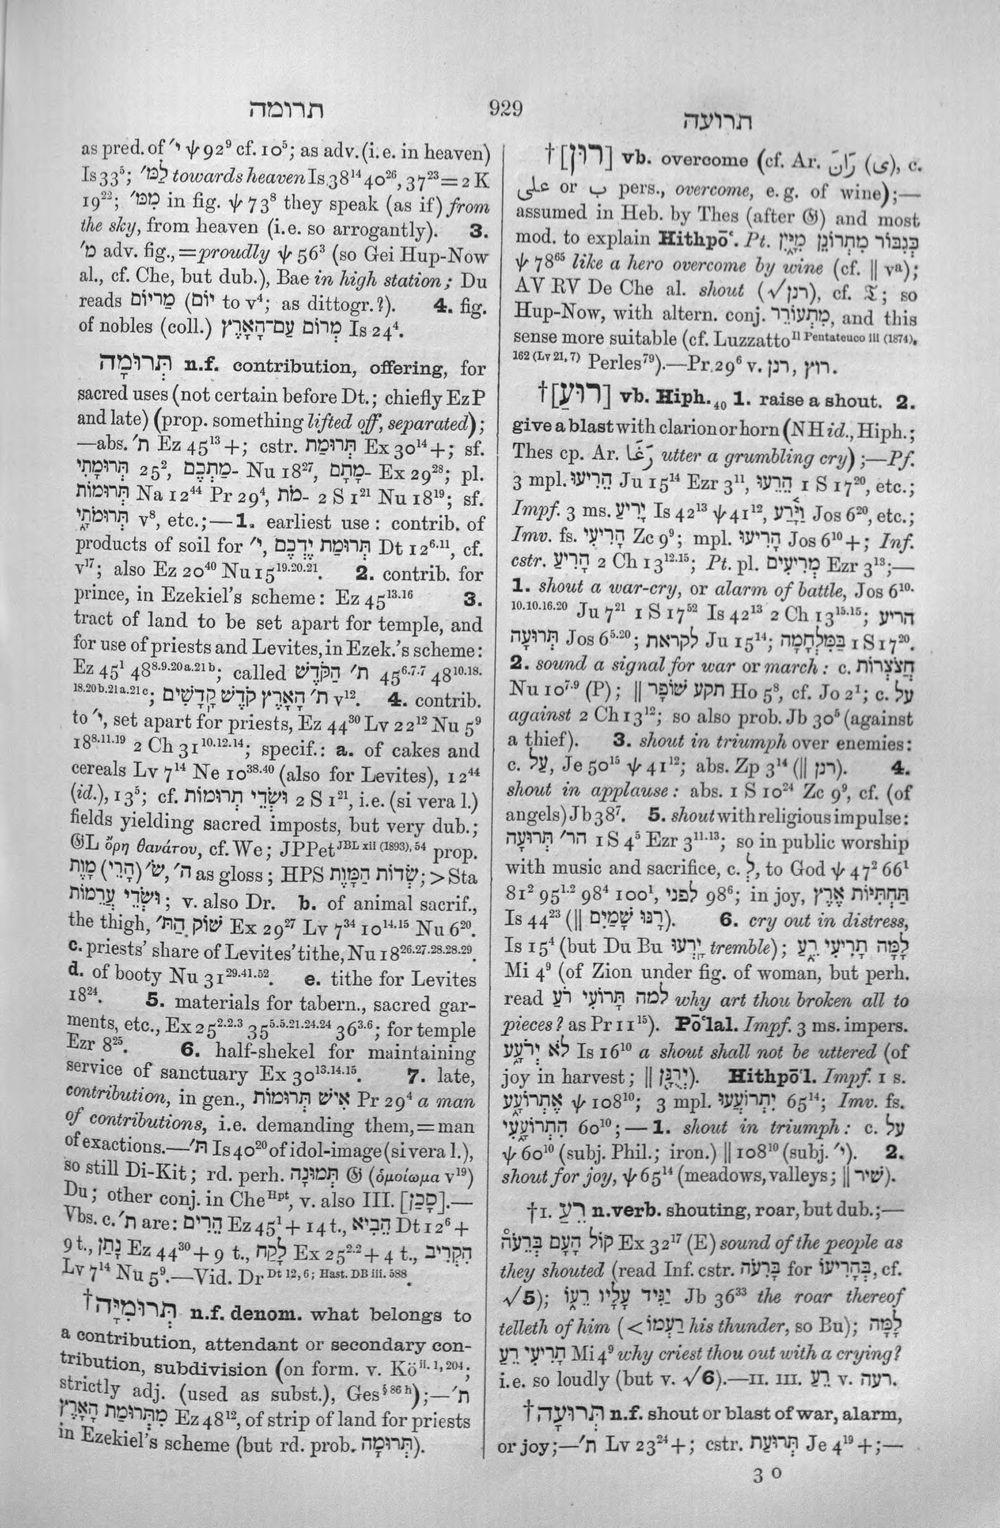 תרומה 929 תרועה
as pred. of ׳י ψ 92⁹ cf. 10⁵; as adv. (i.e. in heaven)
Is 33⁵; לַמּ׳ towards heaven Is 38¹⁴ 40²⁶, 37²³ = 2 K
19²²; מִמּ׳ in fig. ψ 73⁸ they speak (as if) from
the sky, from heaven (i.e. so arrogantly). 3.
מ׳ adv. fig., = proudly ψ 56³ (so Gei Hup-Now
al., cf. Che, but dub.), Bae in high station; Du
reads מֵרִיוֹם (יוֹם to v⁴; as dittogr.?). 4. fig.
of nobles (coll.) מְרוֹם עַם־הָאָרֶץ Is 24⁴.
תְּרוּמָה n.f. contribution, offering, for
sacred uses (not certain before Dt.; chiefly Ez P
and late) (prop. something lifted off, separated);
—abs. ת׳ Ez 45¹³ +; cstr. תְּרוּמַת Ex 30¹⁴ +; sf.
תְּרוּמָתִי 25², ־מַתְכֶם Nu 18²⁷, ־מָתָם Ex 29²⁸; pl.
תְּרוּמוֹת Na 12⁴⁴ Pr 29⁴, ־מֹת 2 S 1²¹ Nu 18¹⁹; sf.
תְּרוּמֹתַי v⁸, etc.;—1. earliest use: contrib. of
products of soil for ׳י, תְּרוּמַת יֶדְכֶם Dt 12⁶·¹¹, cf.
v¹⁷; also Ez 20⁴⁰ Nu 15¹⁹·²⁰·²¹. 2. contrib. for
prince, in Ezekiel's scheme: Ez 45¹³·¹⁶ 3.
tract of land to be set apart for temple, and
for use of priests and Levites, in Ezek.'s scheme:
Ez 45¹ 48⁸·⁹·²⁰ᵃ·²¹ᵇ; called ת׳ הַקֹּדֶשׁ 45⁶·⁷·⁷ 48¹⁰·¹⁸·
¹⁸·²⁰ᵇ·²¹ᵃ·²¹ᶜ; ת׳ הָאָרֶץ קֹדֶשׁ קָדָשִׁים v¹². 4. contrib.
to ׳י, set apart for priests, Ez 44³⁰ Lv 22¹² Nu 5⁹
18⁸·¹¹·¹⁹ 2 Ch 31¹⁰·¹²·¹⁴; specif.: a. of cakes and
cereals Lv 7¹⁴ Ne 10³⁸·⁴⁰ (also for Levites), 12⁴⁴
(id.), 13⁵; cf. וּשְׂדֵי תְרוּמוֹת 2 S 1²¹, i.e. (si vera l.)
fields yielding sacred imposts, but very dub.;
𝔊L ὄρη θανάτου, cf. We; JPPet JBL xii (1893), 54 prop.
שׂ׳ (הָרֵי) מָוֶת, ה׳ as gloss; HPS שְׂדוֹת הַמָּוֶת; > Sta
וּשְׂדֵי עֲרֵמוֹת; v. also Dr. b. of animal sacrif.,
the thigh, שׁוֹק הַתּ׳ Ex 29²⁷ Lv 7³⁴ 10¹⁴·¹⁵ Nu 6²⁰.
c. priests' share of Levites' tithe, Nu 18²⁶·²⁷·²⁸·²⁸·²⁹.
d. of booty Nu 31²⁹·⁴¹·⁵². e. tithe for Levites
18²⁴. 5. materials for tabern., sacred gar-
ments, etc., Ex 25²·²·³ 35⁵·⁵·²¹·²⁴·²⁴ 36³·⁶; for temple
Ezr 8²⁵. 6. half-shekel for maintaining
service of sanctuary Ex 30¹³·¹⁴·¹⁵. 7. late,
contribution, in gen., אִישׁ תְּרוּמוֹת Pr 29⁴ a man
of contributions, i.e. demanding them, = man
of exactions.—ת׳ Is 40²⁰ of idol-image (si vera l.),
so still Di-Kit; rd. perh. תְּמוּנָה 𝔊 (ὁμοίωμα v¹⁹)
Du; other conj. in Che Hpt, v. also III. [סָכַן].—
Vbs. c. ת׳ are: הֵרִים Ez 45¹ + 14 t., הֵבִיא Dt 12⁶ +
9 t., נָתַן Ez 44³⁰ + 9 t., לָקַח Ex 25²·² + 4 t., הִקְרִיב
Lv 7¹⁴ Nu 5⁹.—Vid. Dr Dt 12, 6; Hast. DB iii. 588.
†תְּרוּמִיָּה n.f. denom. what belongs to
a contribution, attendant or secondary con-
tribution, subdivision (on form. v. Kö ii. 1, 204;
strictly adj. (used as subst.), Ges § 86 h);—ת׳
מִתְּרוּמַת הָאָרֶץ Ez 48¹², of strip of land for priests
in Ezekiel's scheme (but rd. prob. תְּרוּמָה).
†[רוּן] vb. overcome (cf. Ar. رَانَ (ى), c.
على or ب pers., overcome, e.g. of wine);—
assumed in Heb. by Thes (after 𝔊) and most
mod. to explain Hithpōʿ. Pt. כְּגִבּוֹר מִתְרוֹנֵן מִיָּיִן
ψ 78⁶⁵ like a hero overcome by wine (cf. ‖ vᵃ);
AV RV De Che al. shout (√רנן), cf. 𝔗; so
Hup-Now, with altern. conj. מִתְעוֹרֵר, and this
sense more suitable (cf. Luzzatto Il Pentateuco iii (1874),
162 (Lv 21, 7) Perles⁷⁹).—Pr 29⁶ v. רנן, רוץ.
†[רוּעַ] vb. Hiph.₄₀ 1. raise a shout. 2.
give a blast with clarion or horn (NH id., Hiph.;
Thes cp. Ar. رَغَا utter a grumbling cry);—Pf.
3 mpl. הֵרִיעוּ Ju 15¹⁴ Ezr 3¹¹, הֵרֵעוּ 1 S 17²⁰, etc.;
Impf. 3 ms. יָרִיעַ Is 42¹³ ψ 41¹², וַיָּרַע Jos 6²⁰, etc.;
Imv. fs. הָרִיעִי Zc 9⁹; mpl. הָרִיעוּ Jos 6¹⁰ +; Inf.
cstr. הָרִיעַ 2 Ch 13¹²·¹⁵; Pt. pl. מְרִיעִים Ezr 3¹³;—
1. shout a war-cry, or alarm of battle, Jos 6¹⁰·
¹⁰·¹⁰·¹⁶·²⁰ Ju 7²¹ 1 S 17⁵² Is 42¹³ 2 Ch 13¹⁵·¹⁵; הריע
תְּרוּעָה Jos 6⁵·²⁰; לקראת Ju 15¹⁴; בַּמִּלְחָמָה 1 S 17²⁰.
2. sound a signal for war or march: c. חֲצֹצְרֹת
Nu 10⁷·⁹ (P); ‖ תקע שׁוֹפָר Ho 5⁸, cf. Jo 2¹; c. עַל
against 2 Ch 13¹²; so also prob. Jb 30⁵ (against
a thief). 3. shout in triumph over enemies:
c. עַל, Je 50¹⁵ ψ 41¹²; abs. Zp 3¹⁴ (‖ רנן). 4.
shout in applause: abs. 1 S 10²⁴ Zc 9⁹, cf. (of
angels) Jb 38⁷. 5. shout with religious impulse:
הר׳ תְּרוּעָה 1 S 4⁵ Ezr 3¹¹·¹³; so in public worship
with music and sacrifice, c. לְ, to God ψ 47² 66¹
81² 95¹·² 98⁴ 100¹, לִפְנֵי 98⁶; in joy, תַּחְתִּיּוֹת אָרֶץ
Is 44²³ (‖ רָנּוּ שָׁמַיִם). 6. cry out in distress,
Is 15⁴ (but Du Bu יָרְעוּ tremble); לָמָּה תָרִיעִי רֵעַ
Mi 4⁹ (of Zion under fig. of woman, but perh.
read למה תֵּרוֹעִי רֹעַ why art thou broken all to
pieces? as Pr 11¹⁵). Pōʿlal. Impf. 3 ms. impers.
לֹא יְרֹעָע Is 16¹⁰ a shout shall not be uttered (of
joy in harvest; ‖ יְרֻנָּן). Hithpōʿl. Impf. 1 s.
אֶתְרוֹעָע ψ 108¹⁰; 3 mpl. יִתְרוֹעֲעוּ 65¹⁴; Imv. fs.
הִתְרוֹעָעִי 60¹⁰;—1. shout in triumph: c. עַל
ψ 60¹⁰ (subj. Phil.; iron.) ‖ 108¹⁰ (subj. ׳י). 2.
shout for joy, ψ 65¹⁴ (meadows, valleys; ‖ שׁיר).
†I. רֵעַ n.verb. shouting, roar, but dub.;—
קוֹל הָעָם בְּרֵעֹה Ex 32¹⁷ (E) sound of the people as
they shouted (read Inf. cstr. בְּרֵעָה for בְּהָרִיעוֹ, cf.
√5); יַגִּיד עָלָיו רֵעוֹ Jb 36³³ the roar thereof
telleth of him (< רַעְמוֹ his thunder, so Bu); לָמָּה
תָרִיעִי רֵעַ Mi 4⁹ why criest thou out with a crying?
i.e. so loudly (but v. √6).—II. III. רֵעַ v. רעה.
†תְּרוּעָה n.f. shout or blast of war, alarm,
or joy;—ת׳ Lv 23²⁴ +; cstr. תְּרוּעַת Je 4¹⁹ +;—
3 O